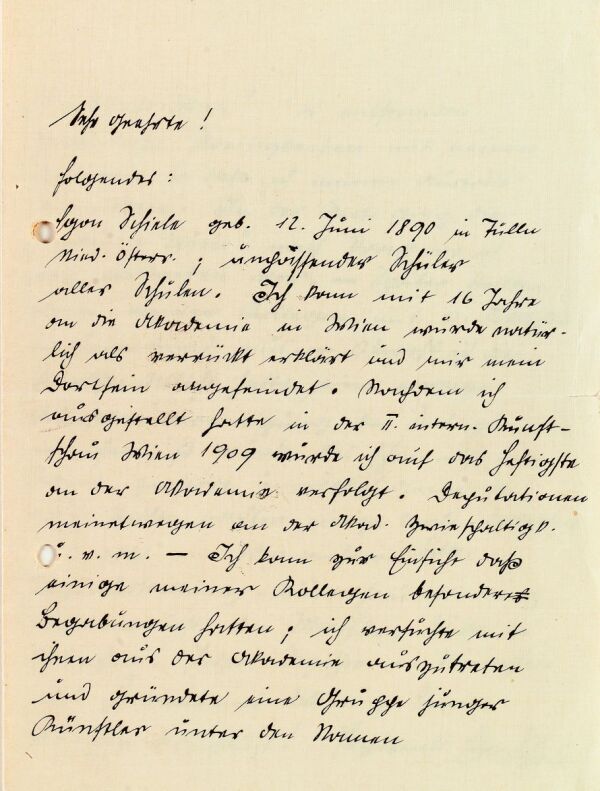 Sehr geehrte!
folgendes:
Egon Schiele geb. 12. Juni 1890 in Tulln
Nied. Österr.; unpassender Schüler
aller Schulen. Ich kam mit 16 Jahre
an die Akademie in Wien wurde natür-
lich als verrückt erklärt und mir mein
Dortsein angefeindet. Nachdem ich
ausgestellt hatte in der II. intern. Kunst-
schau Wien 1909 wurde ich auf das heftigste
an der Akademie verfolgt. Deputationen
meinetwegen an der Akad.
u. v. m. — Ich kam zur Einsicht daß
einige meiner Kollegen besondere
Begabungen hatten; ich versuchte mit
ihnen aus der Akademie auszutreten
und gründete eine Gruppe junger
Künstler unter den Namen